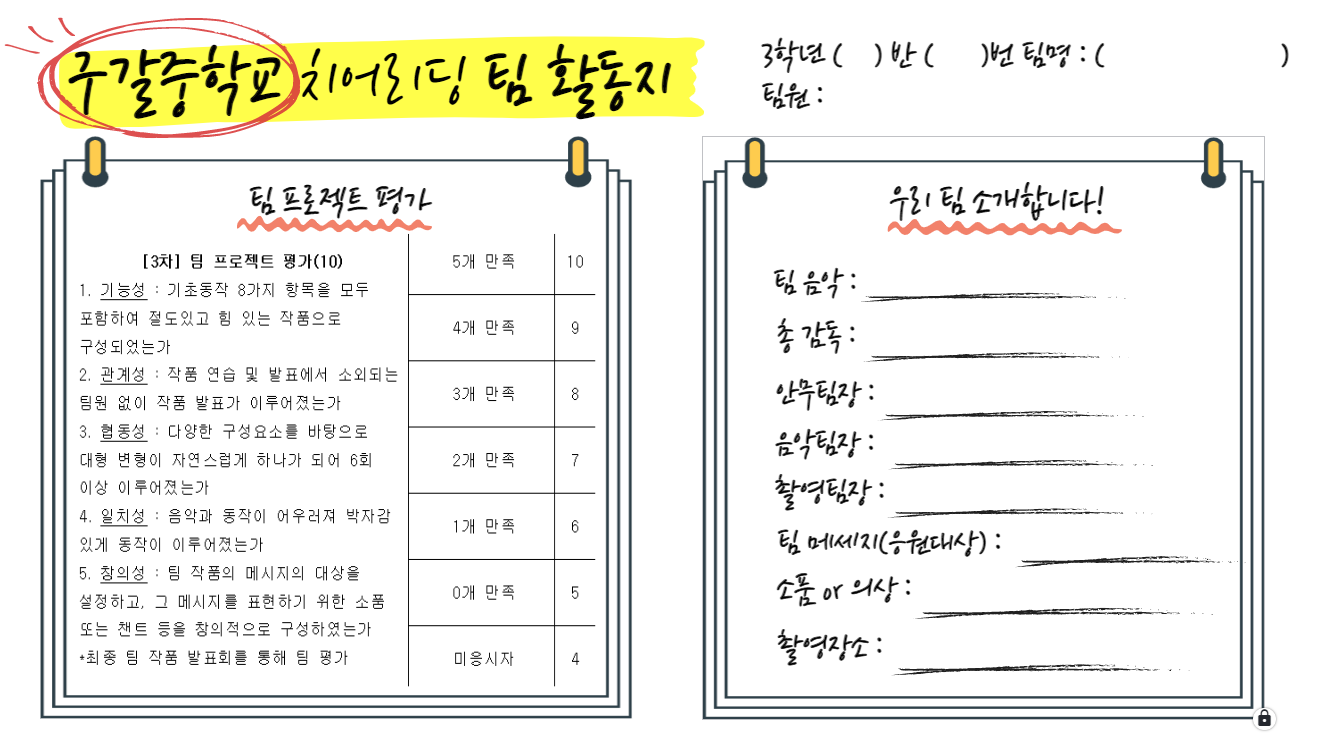 구갈중학교 치어리딩 팀 활동지
3학년 (    ) 반 (      )번 팀명 : (                         )
팀원 :
팀 프로젝트 평가
[3차] 팀 프로젝트 평가(10)
1. 기능성 : 기초동작 8가지 항목을 모두
포함하여 절도있고 힘 있는 작품으로
구성되었는가
2. 관계성 : 작품 연습 및 발표에서 소외되는
팀원 없이 작품 발표가 이루어졌는가
3. 협동성 : 다양한 구성요소를 바탕으로
대형 변형이 자연스럽게 하나가 되어 6회
이상 이루어졌는가
4. 일치성 : 음악과 동작이 어우러져 박자감
있게 동작이 이루어졌는가
5. 창의성 : 팀 작품의 메시지의 대상을
설정하고, 그 메시지를 표현하기 위한 소품
또는 챈트 등을 창의적으로 구성하였는가
*최종 팀 작품 발표회를 통해 팀 평가
5개 만족 10
4개 만족 9
3개 만족 8
2개 만족 7
1개 만족 6
0개 만족 5
미응시자 4
우리 팀 소개합니다!
팀 음악 :
총 감독 :
안무팀장 :
음악팀장 :
촬영팀장 :
팀 메세지(응원대상) :
소품 or 의상 :
촬영장소 :